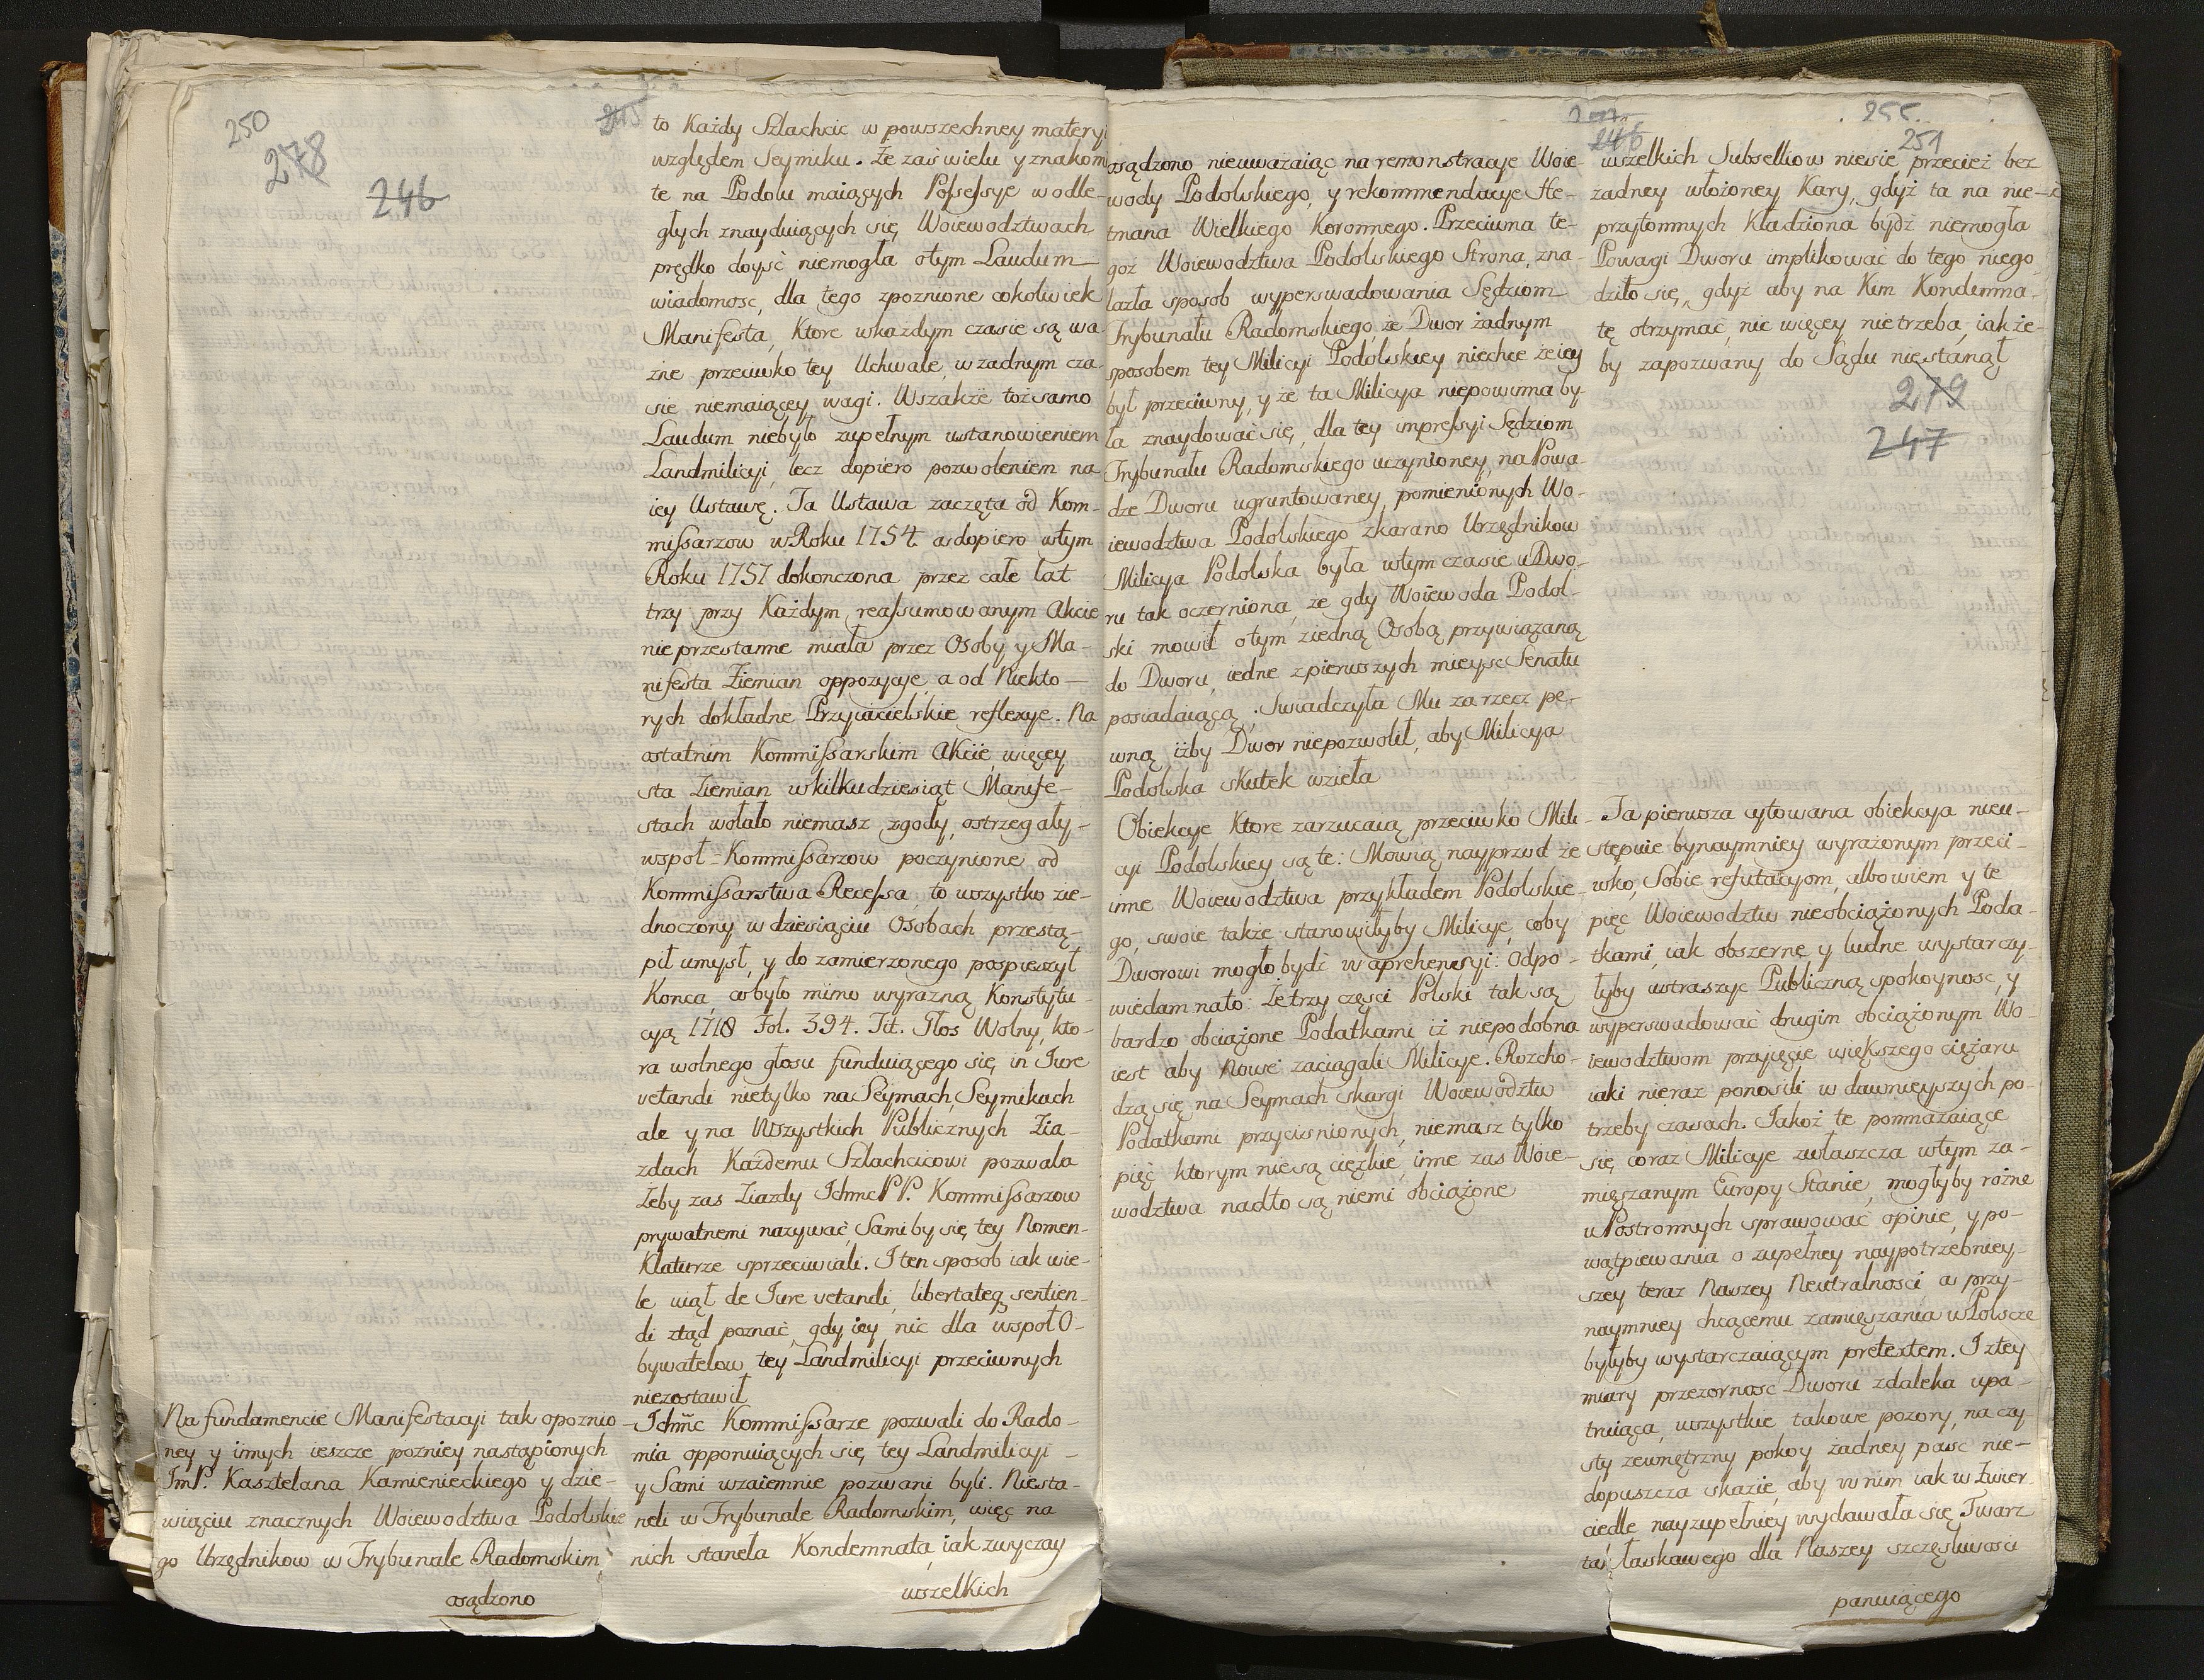 250
278
246
Na fundamencie Manifestacyi tak opoznio-
ney y innych ieszcze pozniey nastąpionych
JmP. Kasztelana Kamienieckiego y dzie-
więciu znacznych Woiewodztwa Podolskie
go Urzędnikow w Trybunale Radomskim,
osądzono
to Każdy Szlachcic w powszechney matery
względem Seymiku. Że zaś wielu y znakom
te na Podolu maiących Possessye w odle-
głych znayduiących się Woiewodztwach
prędko doyść niemogła otym Laudum
wiadomosc, dla tego zpoznione cokolwiek
Manifesta, Ktore wkażdym czasie są wa-
żne przeciwko tey Uchwale, w zadnym cza-
sie niemaiącey wagi. Wszakże toż samo
Laudum niebyło zupełnym ustanowieniem
Landmilicyi, lecz dopiero pozwoleniem na
iey Ustawę. Ta Ustawa zaczęta od Kom-
missarzow w Roku 1754. a dopiero wtym
Roku 1757 dokonczona przez całe lat
trzy przy Każdym reassumowanym Akcie
nieprzestanne miała przez Osoby y Ma-
nifesta Ziemian oppozycye, a od Niekto-
rych dokładne Przyiacielskie reflexye. Na
ostatnim Kommissarskim Akcie, więcey
sta Ziemian w kilkudziesiąt Manife-
stach wołało niemasz zgody, ostrzegały
wspoł-Kommissarzow poczynione od
Kommissarstwa Recessa, to wszystko zie-
dnoczony w dziesiąciu Osobach przestą-
pił umysł, y do zamierzonego pospieszył
Konca, cobyło mimo wyrazną Konstytu-
cyą 1718 Fol. 394. Tit. Głos Wolny, kto-
ra wolnego głosu funduiącego się in Jure
vetandi nietylko na Seymach, Seymikach
ale y na Wszystkich Publicznych Zia-
zdach Każdemu Szlachcicowi pozwala
Żeby zas Ziazdy JchmcPP. Kommissarzow
prywatnemi nazywać, Sami by się tey Nomen-
Klaturze sprzeciwiali. I ten sposob iak wie-
le uiął de Jure vetandi, libertateq; sentien-
di ztąd poznać, gdy iey nic dla wspoł O-
bywatelow tey Landmilicyi przeciwnych
niezostawił
Jchmc Kommissarze pozwali do Rado-
mia opponuiących się tey Landmilicyi
y Sami wzaiemnie pozwani byli. Niesta-
neli w Trybunale Radomskim, więc na
nich staneła Kondemnata, iak zwyczay
wszelkich
osądzono nieuważaiąc na remonstracye Woie-
wody Podolskiego, y rekommendacye He-
tmana Wielkiego Koronnego. Przeciwna te-
goż Woiewodztwa Podolskiego Strona, zna-
lazła sposob wyperswadowania Sędziom
Trybunału Radomskiego, że Dwor żadnym
sposobem tey Milicyi Podolskiey niechce że iey
był przeciwny, y że ta Milicya niepowinna by-
ła znaydować się, dla tey impressyi Sędziom
Trybunału Radomskiego uczynioney, na Powa-
dze Dworu ugruntowaney pomienionych Wo-
iewodztwa Podolskiego zkarano Urzędnikow
Milicya Podolska była wtym czasie u Dwo-
ru tak oczerniona, że gdy Woiewoda Podol-
ski mowił otym ziedną Osobą przywiązaną
do Dworu, iedne zpierwszych mieysc Senatu
posiadaiącą; Swiadczyła Mu za rzecz pe-
wną, iżby Dwor niepozwolił, aby Milicya
Podolska skutek wzieła
Obiekcye Ktore zarzucaią przeciwko Mili-
cyi Podolskiey są te: Mowią nayprzod że
inne Woiewodztwa przykładem Podolskie-
go, swoie także stanowiłyby Milicye, coby
Dworowi mogło bydź w aprehensyi: Odpo-
wiedam nato: Że trzy części Polski tak są
bardzo obciążone Podatkami iż niepodobna
iest aby Nowe zaciągali Milicye. Rozcho-
dzą się na Seymach skargi Woiewodztw
Podatkami przycisnionych, niemasz tylko
pięć ktorym niesą ciężkie, inne zas Woie-
wodztwa nadto są niemi obciążone
246
255.
251
wszelkich Subselliow niesie przecież bez
zadney włożoney Kary, gdyż ta na nie-
przytomnych Kładziona bydź niemogła
Powagi Dworu implikować do tego niego-
dziło się, gdyż aby na Kim Kondemna-
tę otrzymać, nic więcey nie trzeba, iak że-
by zapozwany do Sądu niestanął
279
247
Ta pierwsza cytowana obiekcya nieu-
stępuie bynaymniey wyrażonym przeci-
wko Sobie refutacyom, albowiem y te
pięc Woiewodztw nieobciążonych Poda-
tkami, iak obszerne y ludne wystarczy-
łyby ustraszyc Publiczną spokoynosc, y
wyperswadować drugim obciążonym Wo-
iewodztwom przyięcie większego ciężaru
iaki nieraz ponosili w dawnieyszych po-
trzeby czasach. Jakoż te pomnażaiące
się coraz Milicye zwłaszcza wtym za-
mięszanym Europy Stanie, mogłyby różne
u Postronnych sprawować opinie, y po-
wątpiewania o zupełney naypotrzebniey-
szey teraz Naszey Neutralności a przy-
naymniey chcącemu zamięszania w Polscze
byłyby wystarczaiącym pretextem. I ztey
miary przezorność Dworu zdaleka upa-
truiąca, wszystkie takowe pozory, na czy-
sty zewnętrzny pokoy żadney paść nie-
dopuszcza skazie, aby w nim iak w Zwier-
ciedle nayzupełniey wydawała się Twarz
ta łaskawego dla Naszey szczęsliwosci
panuiącego